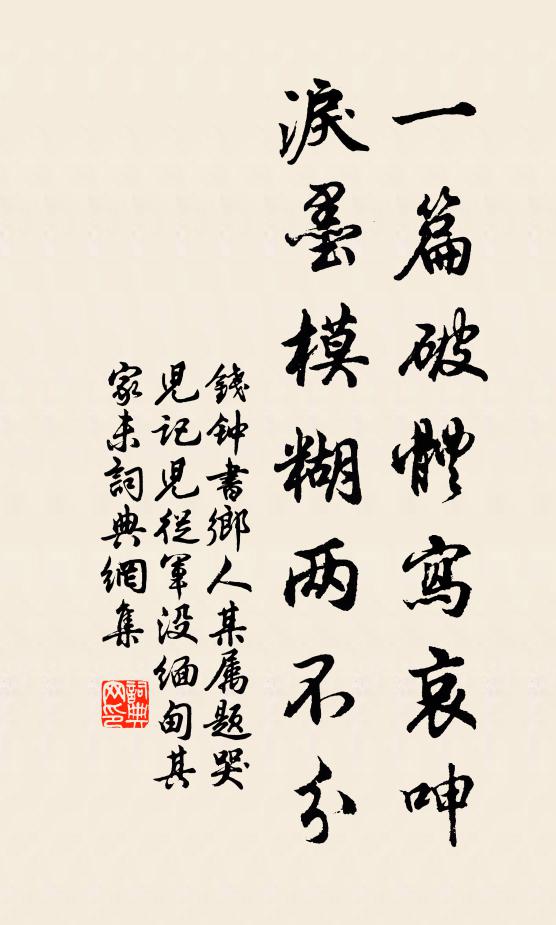 一篇破體寫哀呻
淚墨模糊两不分
錢钟書鄉人某属題哭
児記児從軍没缅甸其
家未詞典網集
詞典
网印